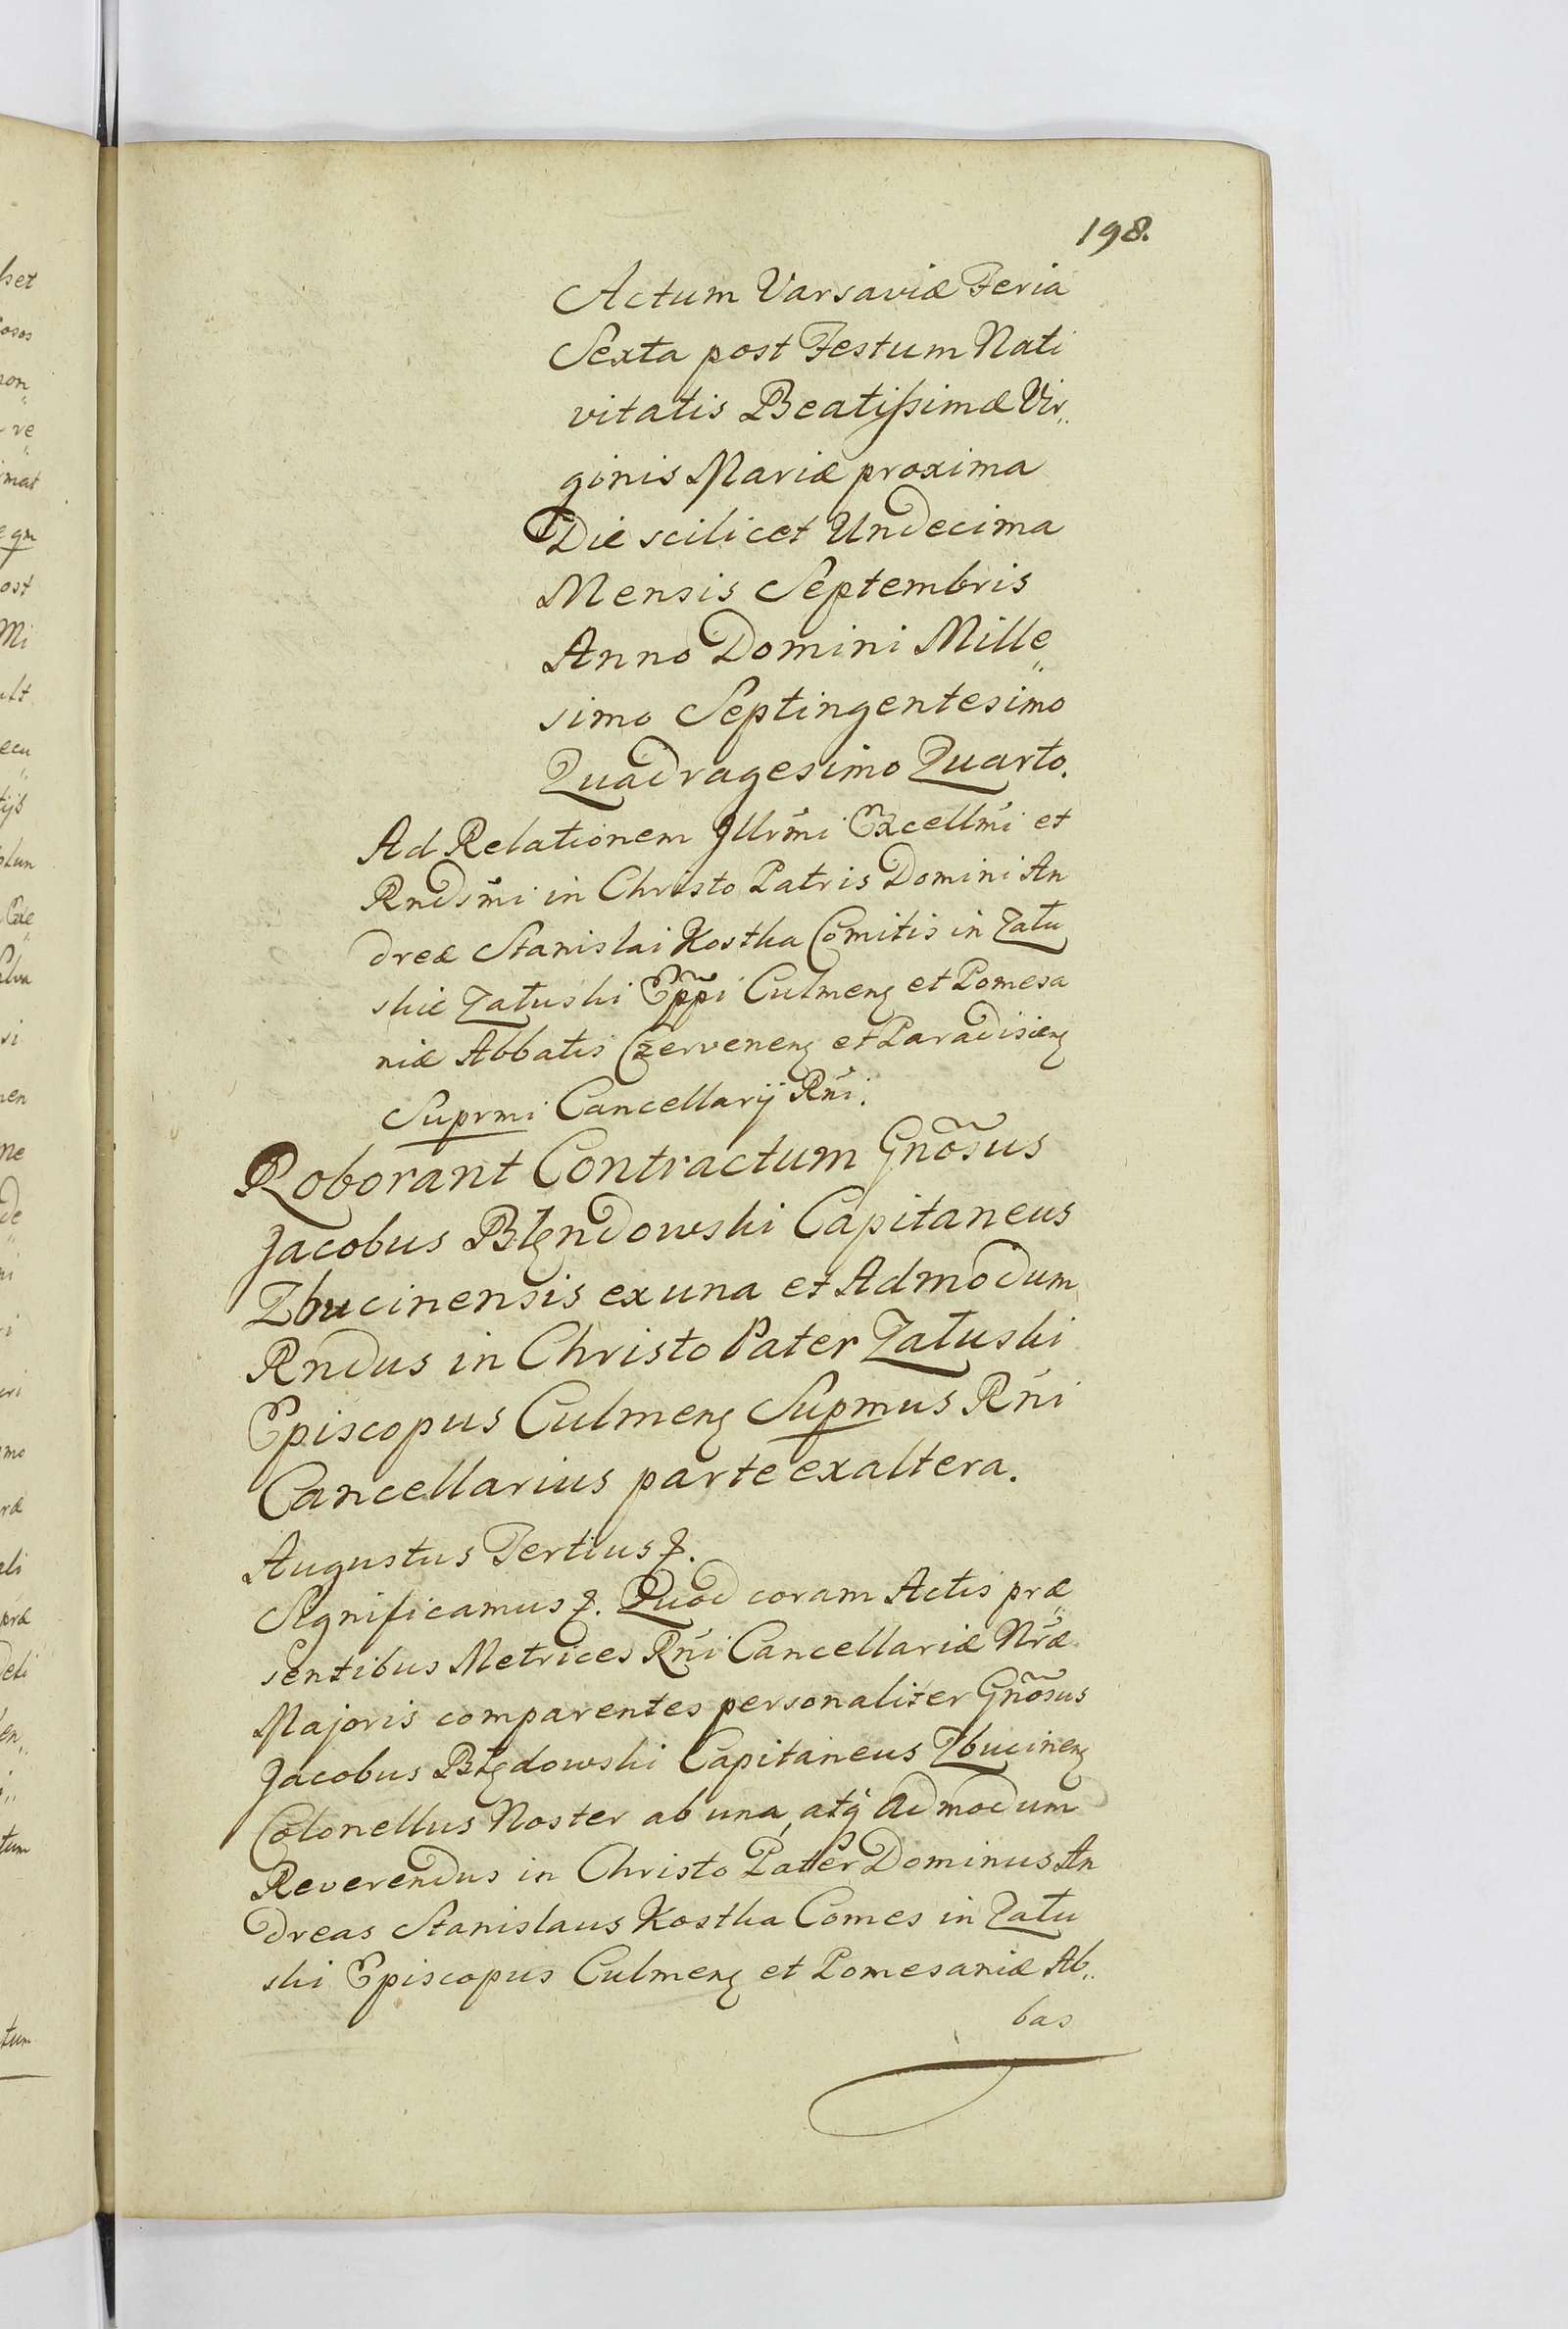 198.
Actum Varsaviæ Feria
Sexta post Festum Nati
vitatis Beatissimæ Vir„
ginis Mariæ proxima
Die scilicet Undecima
Mensis Septembris
Anno Domini Mille„
simo Septingentesimo
Quadragesimo Quarto.
Ad Relationem Illrm̃i Excellm̃i et
Rndsm̃i in Christo Patris Domini An
dreæ Stanislai Kostka Comitis in Zału
skie Załuski Epp̃i Culmenȝ et Pomesa
niæ Abbatis Czervenenȝ et Paradisienȝ
Suprmi Cancellarij Rñi.
Roborant Contractum Gnõsus
Jacobus Błȩndowski Capitaneus
Zbucinensis ex una et Admodum
Rndus in Christo Pater Załuski
Episcopus Culmenȝ Supmus Rñi
Cancellarius parte ex altera.
Augustus Tertius ꝛ.
Significamus ꝛ. Quod coram Actis præ„
sentibus Metrices Rñi Cancellariæ Nr̃æ
Majoris comparentes personaliter Gnõsus
Jacobus Błȩdowski Capitaneus Zbucinenȝ
Colonellus Noster ab una, atq̃ Admodum
Reverendus in Christo Pater Dominus An
dreas Stanislaus Kostka Comes in Zału
ski Episcopus Culmenȝ et Pomesaniæ Ab„
bas